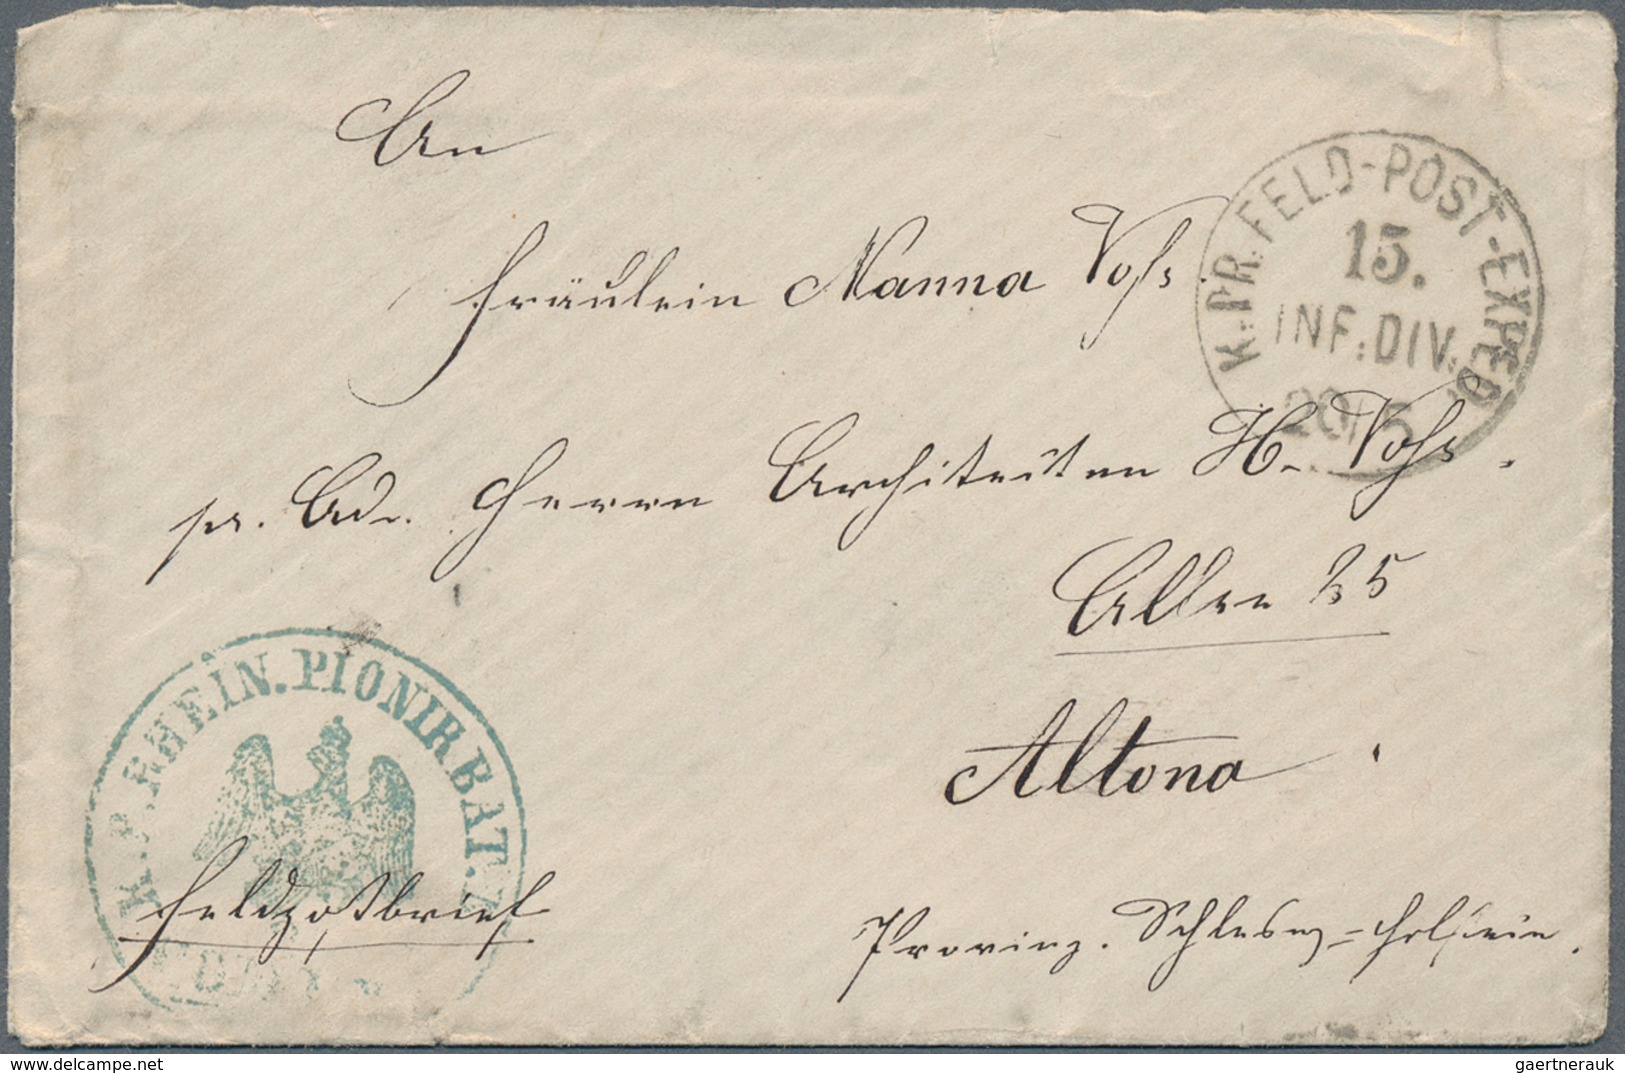 An
Fräulein Nanna Voss
pr. Adr. Herrn Architecten H. Voss.
Allee 25
Altona
Provinz. Schlesw-Holstein.
Feldpostbrief
K. PR. FELD-POST-EXPED.
15.
INF: DIV.
20/5
K. P. RHEIN. PIONIR BAT.
www.delcampe.net
gaertnerauk